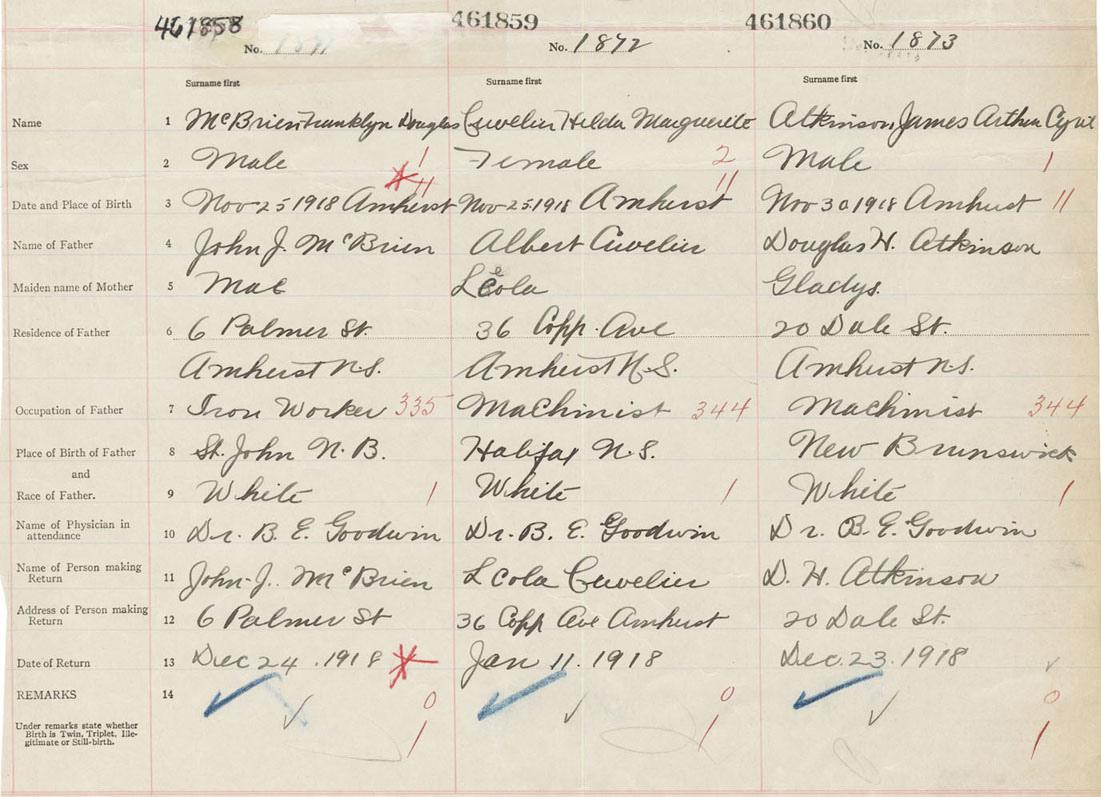 461858 461859 461860
No. No. 1872 No. 1873
Surname first Surname first Surname first
Name 1 McBrien Franklyn Douglas Cuvelier Hilda Marguerite Atkinson, James Arthur Cyril
Sex 2 Male 1 Female 2 Male 1
11 11
Date and Place of Birth 3 Nov 25 1918 Amherst Nov 25 1918 Amherst Nov 30 1918 Amherst 11
Name of Father 4 John J. McBrien Albert Cuvelier Douglas H. Atkinson
Maiden name of Mother 5 Mae Leola Gladys.
Residence of Father 6 6 Palmer St. 36 Copp. Ave 20 Dale St.
Amherst N.S. Amherst N.S. Amherst N.S.
Occupation of Father 7 Iron Worker 335 Machinist 344 Machinist 344
Place of Birth of Father 8 St. John N. B. Halifax N.S. New Brunswick
and
Race of Father. 9 White 1 White 1 White 1
Name of Physician in
attendance 10 Dr. B. E. Goodwin Dr. B. E. Goodwin Dr. B. E. Goodwin
Name of Person making
Return 11 John J. McBrien Leola Cuvelier D. H. Atkinson
Address of Person making
Return 12 6 Palmer St 36 Copp Ave Amherst 20 Dale St.
Date of Return 13 Dec 24. 1918 Jan 11. 1918 Dec. 23. 1918
REMARKS 14 0 0 0
Under remarks state whether
Birth is Twin, Triplet, Ille-
gitimate or Still-birth. 1 1 1